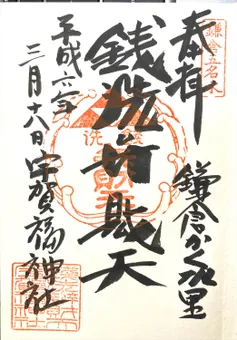 奉拝
鎌倉かくれ里
銭洗弁財天
平成六年
三月十八日宇賀福神社